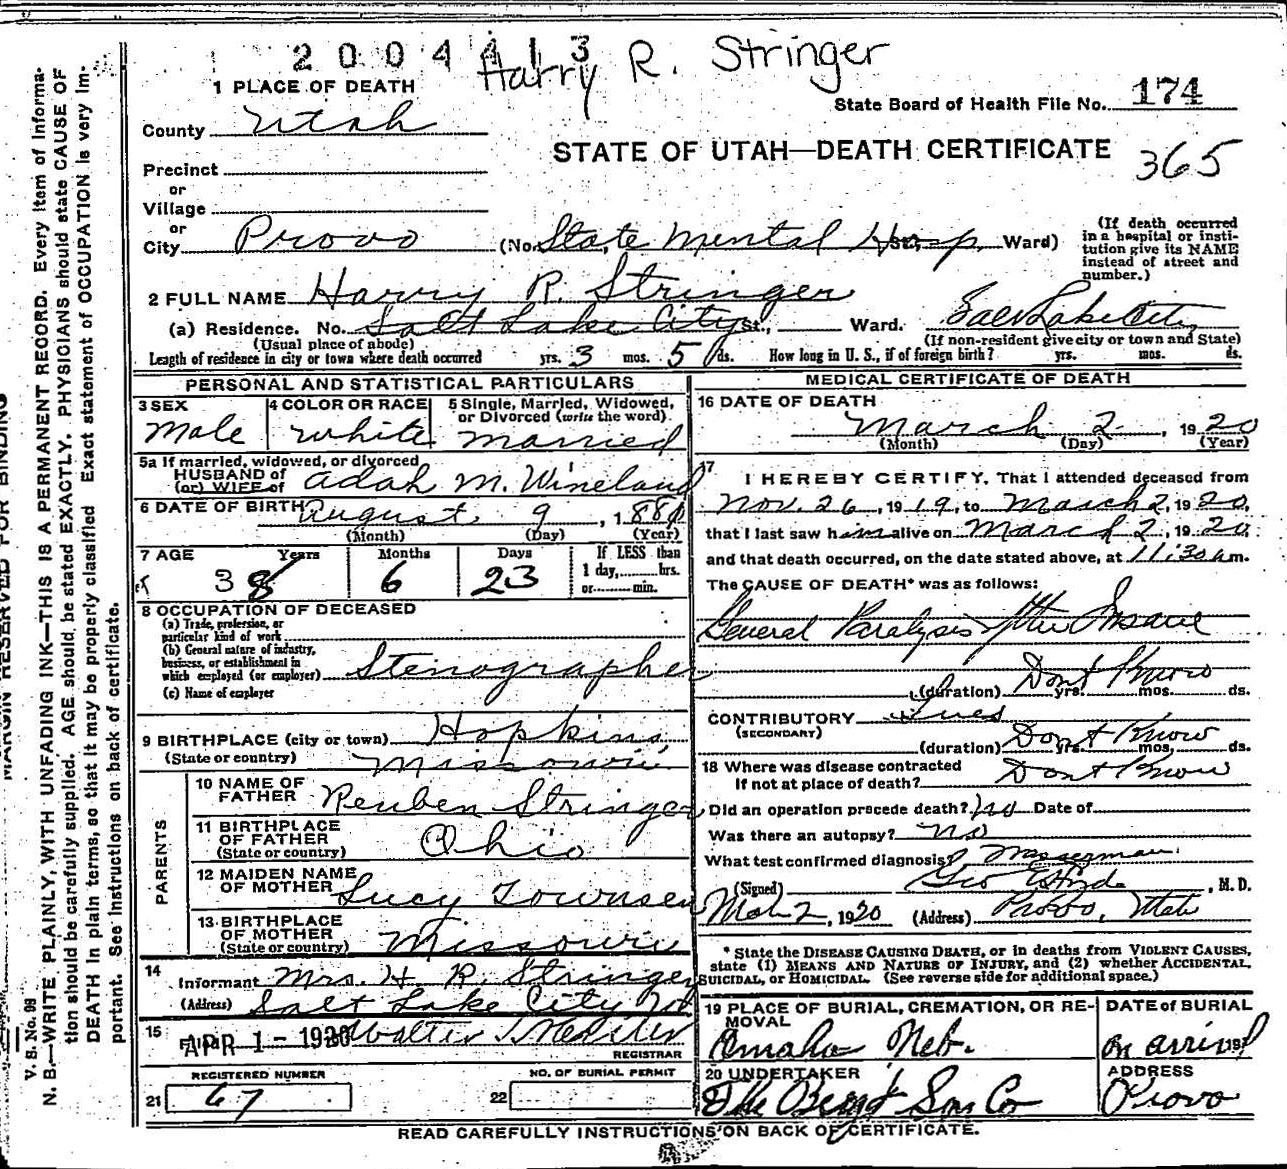 2004413
Harry R. Stringer
1 PLACE OF DEATH
State Board of Health File No. 174
County Utah
STATE OF UTAH—DEATH CERTIFICATE 365
Precinct
or
Village
or
City Provo (No. State Mental Hosp St., Ward)
(If death occurred in a hospital or institution give its NAME instead of street and number.)
2 FULL NAME Harry R. Stringer
(a) Residence. No. Salt Lake City St., Ward. Salt Lake City
(Usual place of abode) (If non-resident give city or town and State)
Length of residence in city or town where death occurred yrs. 3 mos. 5 ds. How long in U. S., if of foreign birth? yrs. mos. ds.
PERSONAL AND STATISTICAL PARTICULARS
3 SEX Male
4 COLOR OR RACE white
5 Single, Married, Widowed, or Divorced (write the word) married
5a If married, widowed, or divorced
HUSBAND of
(or) WIFE of Adah M. Wineland
6 DATE OF BIRTH August 9, 1881
(Month) (Day) (Year)
7 AGE Years Months Days If LESS than
38 6 23 1 day, hrs.
or min.
8 OCCUPATION OF DECEASED
(a) Trade, profession, or
particular kind of work
(b) General nature of industry,
business, or establishment in
which employed (or employer) Stenographer
(c) Name of employer
9 BIRTHPLACE (city or town) Hopkins,
(State or country) Missouri
PARENTS
10 NAME OF
FATHER Reuben Stringer
11 BIRTHPLACE
OF FATHER
(State or country) Ohio
12 MAIDEN NAME
OF MOTHER Lucy Townsen
13 BIRTHPLACE
OF MOTHER
(State or country) Missouri
14
Informant Mrs. H. R. Stringer
(Address) Salt Lake City
15
APR 1 - 1920 Walter
REGISTRAR
REGISTERED NUMBER
21 67
NO. OF BURIAL PERMIT
22
MEDICAL CERTIFICATE OF DEATH
16 DATE OF DEATH
March 2, 1920
(Month) (Day) (Year)
17
I HEREBY CERTIFY, That I attended deceased from
Nov. 26, 1919, to March 2, 1920,
that I last saw him alive on March 2, 1920
and that death occurred, on the date stated above, at 11:30 a m.
The CAUSE OF DEATH* was as follows:
General Paralysis of the Insane
(duration) Dont Know yrs. mos. ds.
CONTRIBUTORY Lues
(SECONDARY)
(duration) Dont Know yrs. mos. ds.
18 Where was disease contracted
If not at place of death? Dont Know
Did an operation precede death? no Date of
Was there an autopsy? no
What test confirmed diagnosis? Wasserman
(Signed) Geo E Hyde, M. D.
Mch 2, 1920 (Address) Provo, Utah
* State the DISEASE CAUSING DEATH, or in deaths from VIOLENT CAUSES,
state (1) MEANS AND NATURE OF INJURY, and (2) whether ACCIDENTAL,
SUICIDAL, or HOMICIDAL. (See reverse side for additional space.)
19 PLACE OF BURIAL, CREMATION, OR REMOVAL
Omaha Neb.
DATE of BURIAL
on arrival 191
20 UNDERTAKER
The Berg & Sons Co
ADDRESS
Provo
READ CAREFULLY INSTRUCTIONS ON BACK OF CERTIFICATE.
MARGIN RESERVED FOR BINDING
V. S. No. 98
N. B.—WRITE PLAINLY, WITH UNFADING INK—THIS IS A PERMANENT RECORD. Every item of informa-
tion should be carefully supplied. AGE should be stated EXACTLY. PHYSICIANS should state CAUSE OF
DEATH in plain terms, so that it may be properly classified. Exact statement of OCCUPATION is very im-
portant. See instructions on back of certificate.